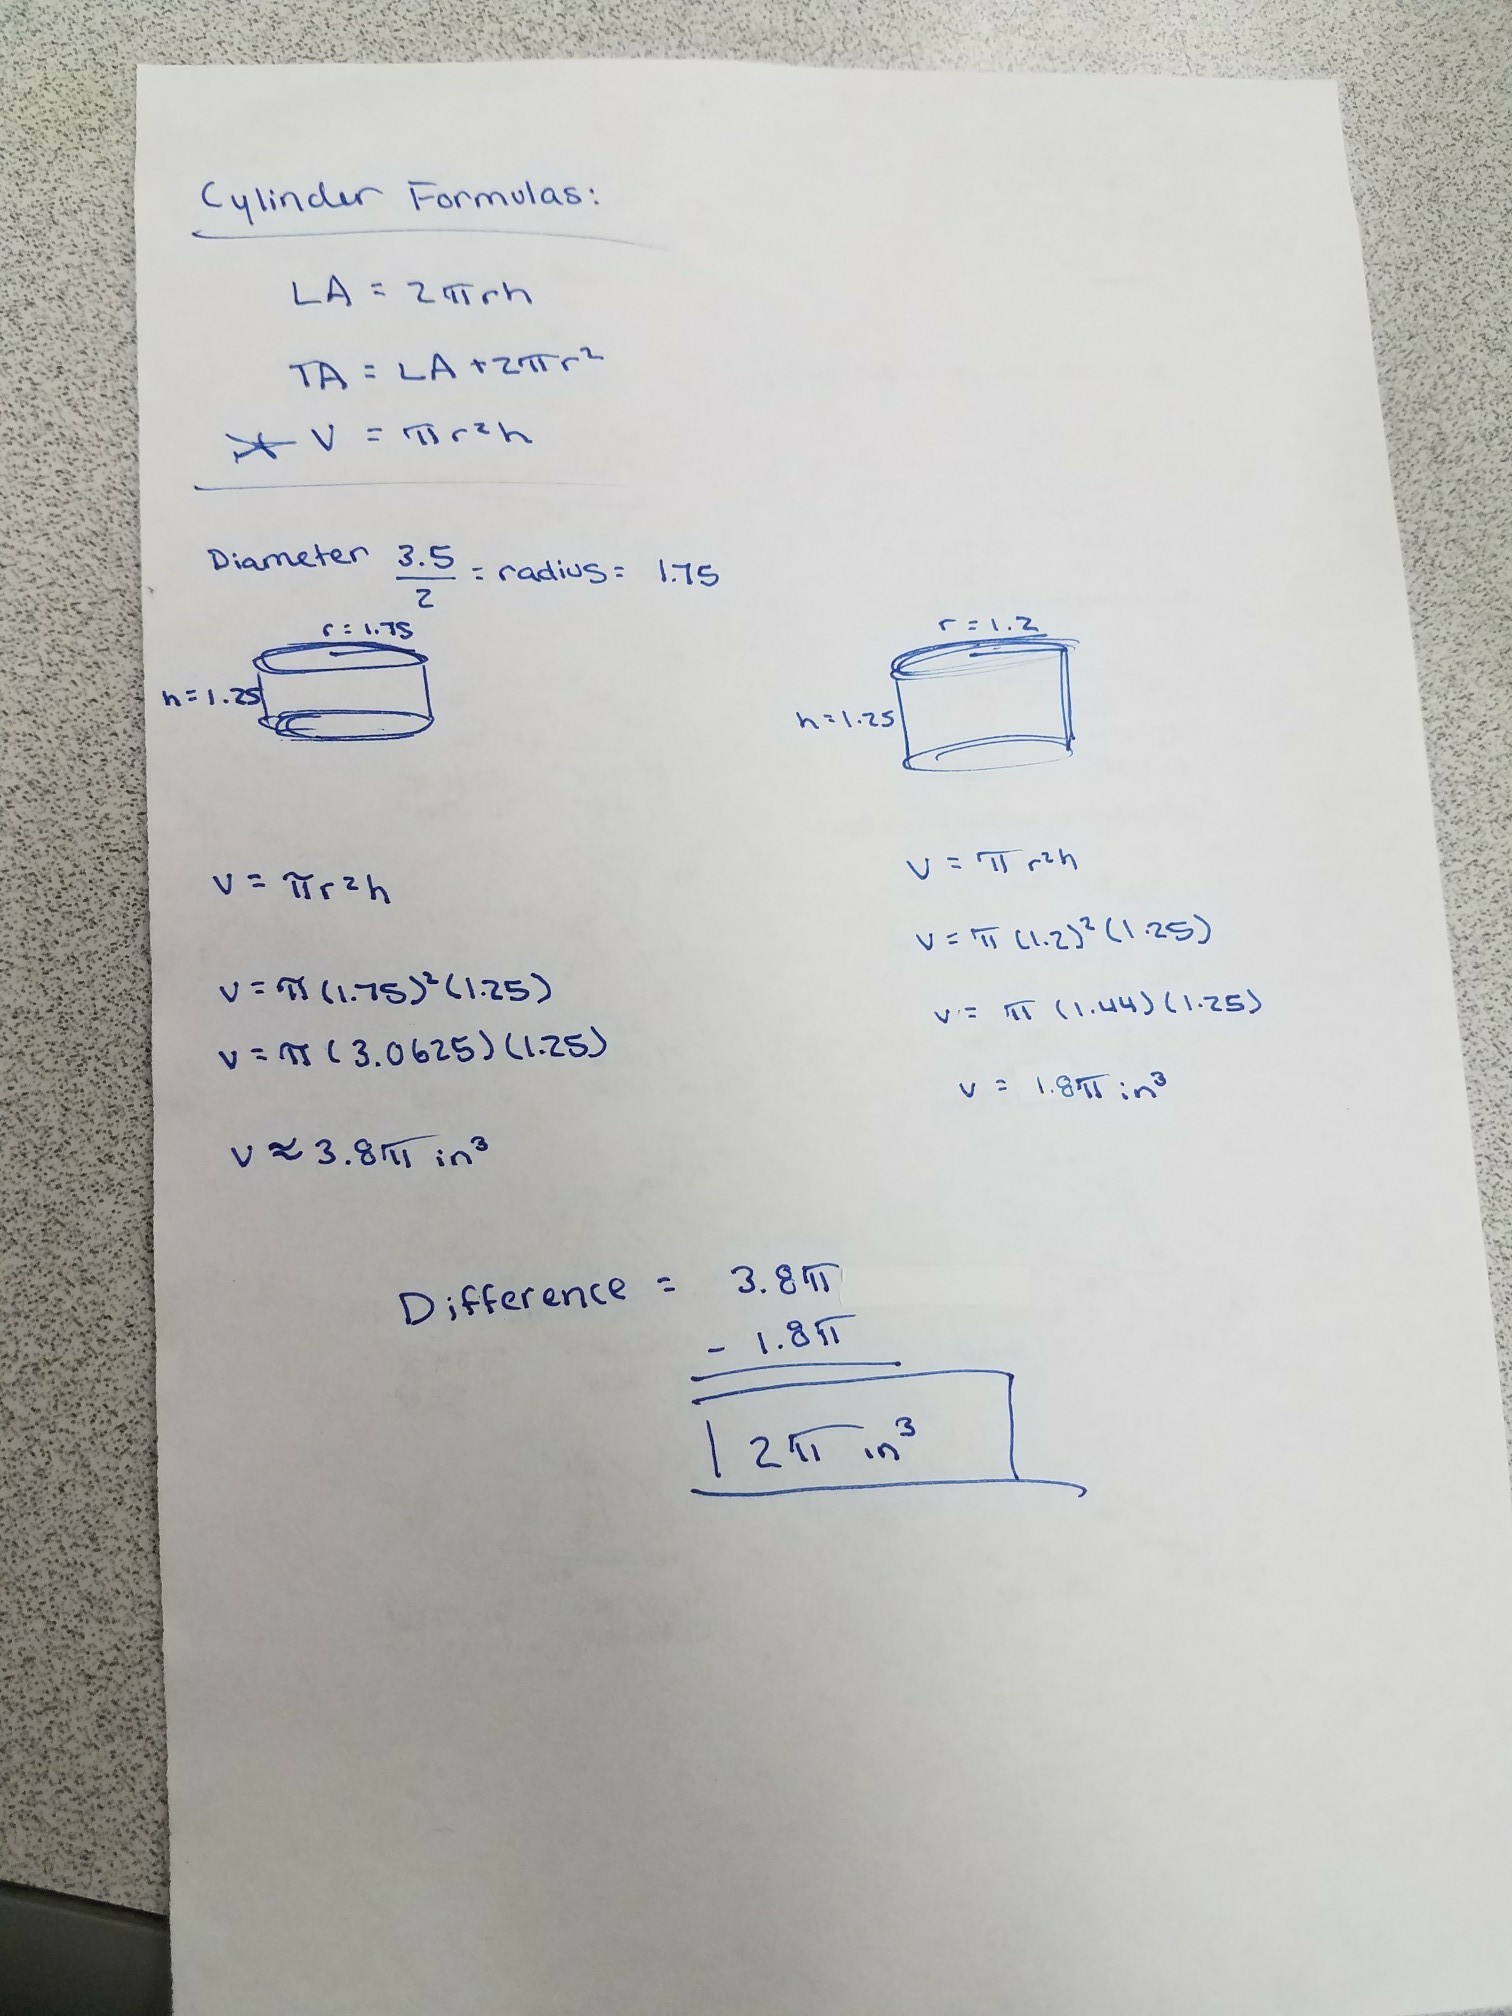 Cylinder Formulas:
LA = 2πrh
TA = LA + 2πr²
* V = πr²h
Diameter 3.5/2 = radius = 1.75
r = 1.75
h = 1.25
r = 1.2
h = 1.25
V = πr²h
V = π(1.75)²(1.25)
V = π(3.0625)(1.25)
V ≈ 3.8π in³
V = πr²h
V = π(1.2)²(1.25)
V = π(1.44)(1.25)
V = 1.8π in³
Difference = 3.8π
- 1.8π
2π in³